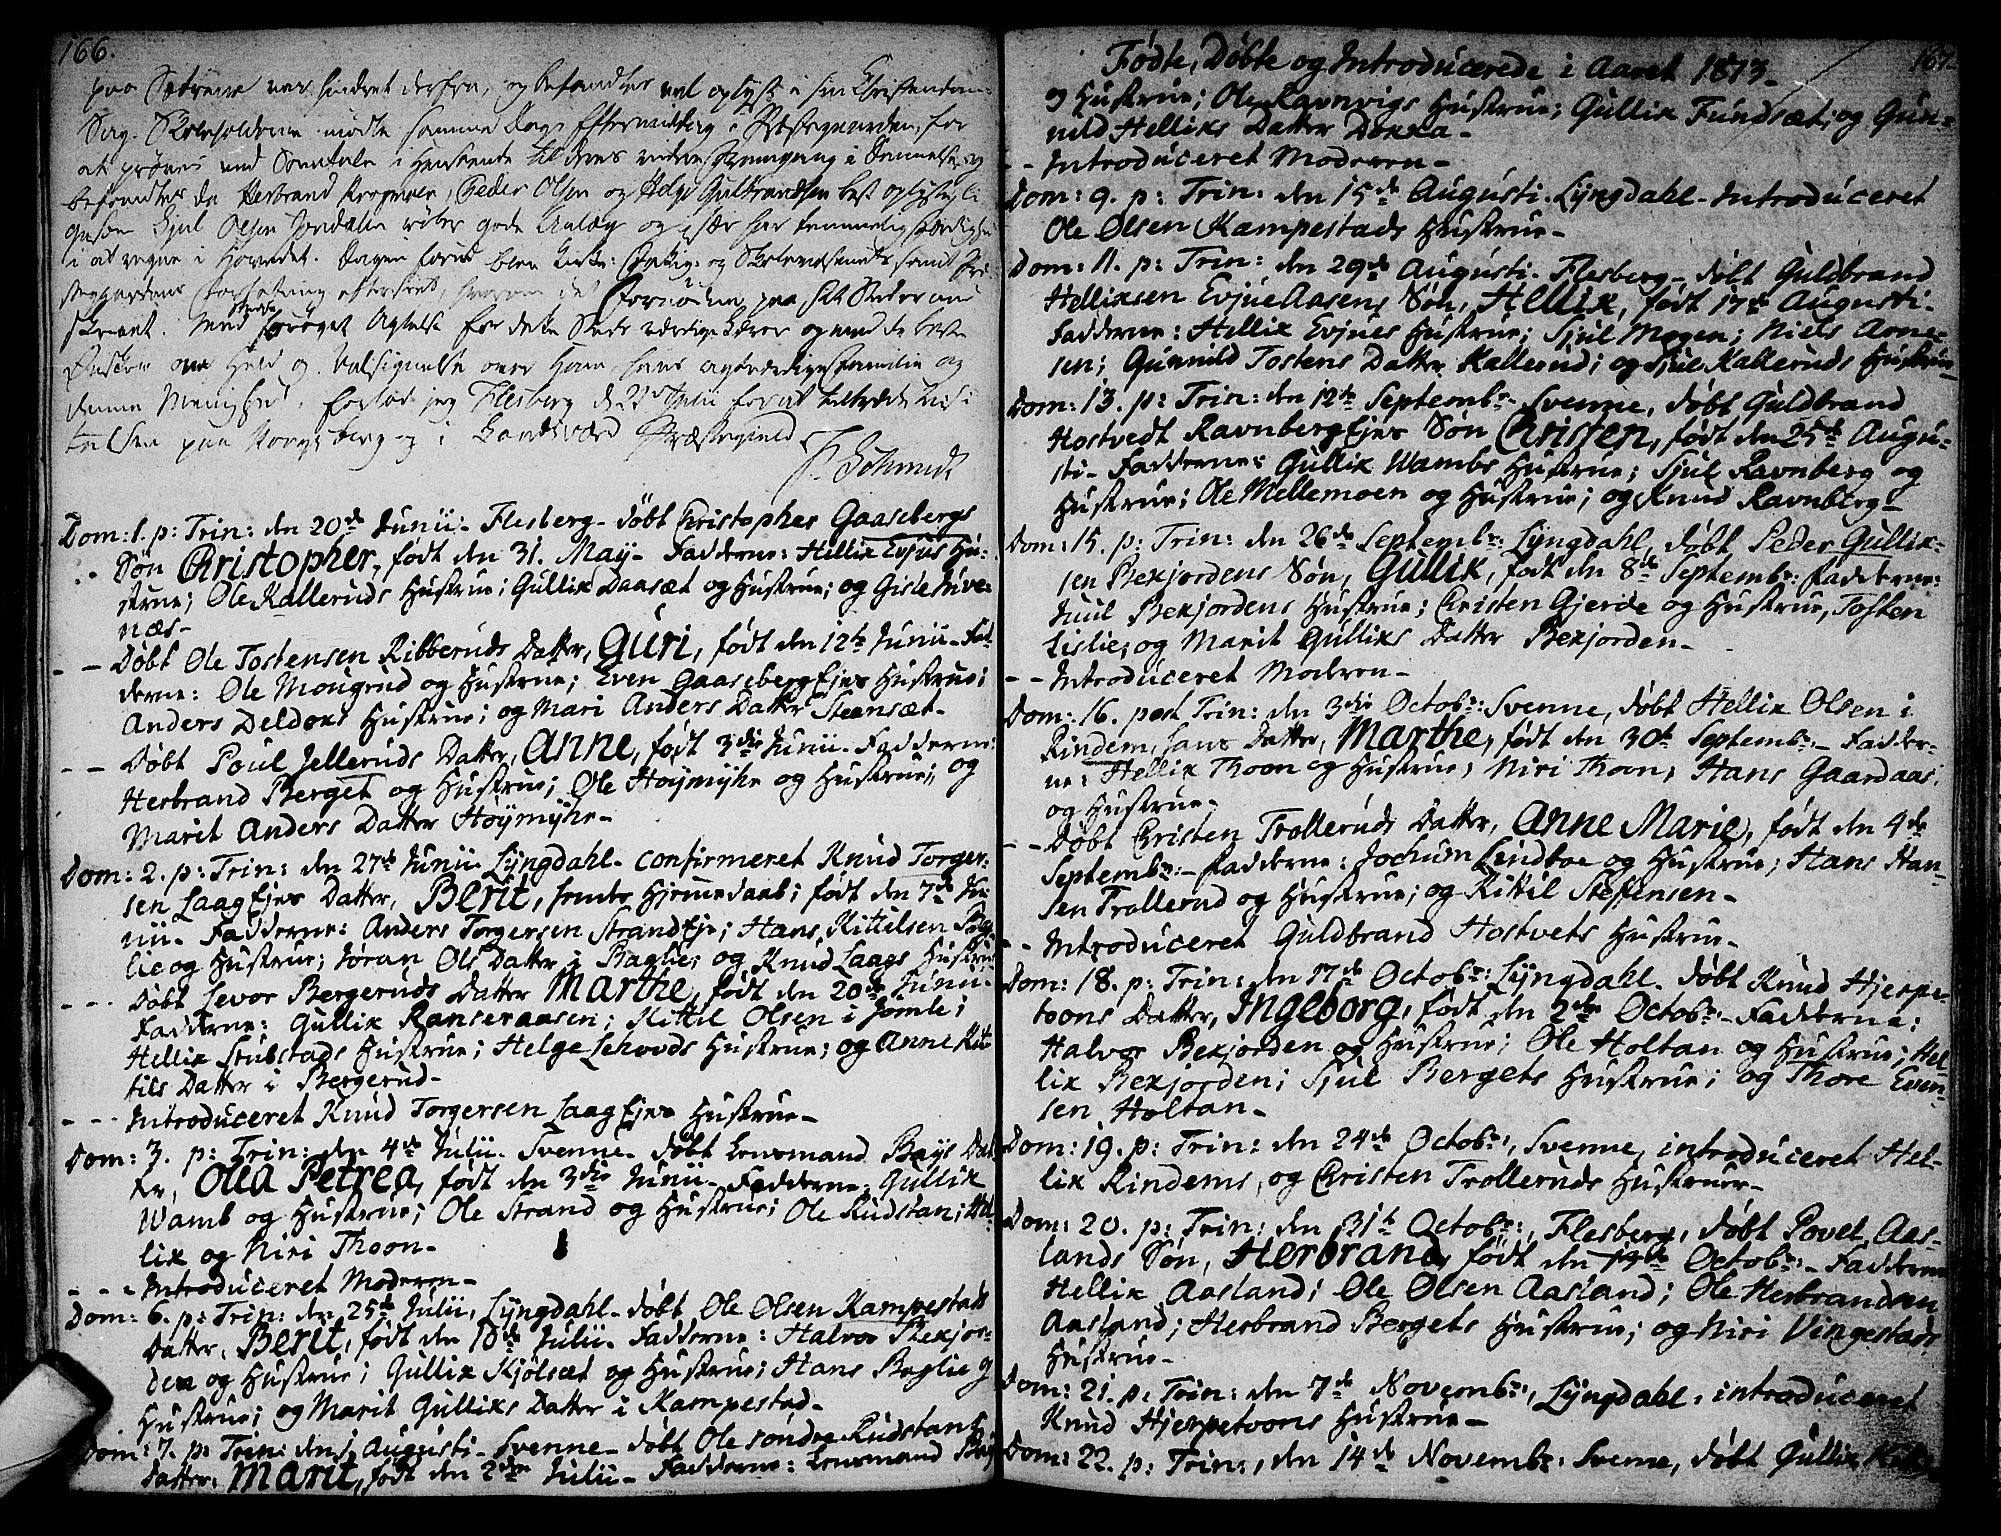 166.
paa Sætrene var hindret derfra, og befandtes vel oplyst i sin Christendoms
Sag. Skoleholderne mødte samme Dags Eftermiddag i Præstegaarden, for
at prøves ved Samtale i Henseende til deres videre Fremgang i Dannelse, og
befandtes da Herbrand Bergerud, Peder Olsen og Helge Gulbrandsen best oplyste, li
gesom Gjul Olsen Jondalen røber gode Anlæg og især har temmelig Færdighed
i at regne i Hovedet. Dagen forud blev Kirke: Fattig: og Skolevæsenets samt Præ
stegaardens Forfatning efterseet, hvorom det Fornødne paa sit Sted er an
skrevet. Med stedse forøget Agtelse for dette Steds værdige Lærer og med de beste
Ønsker om Held og Velsignelse over Ham, hans agtværdige Familie og
denne Menighed, forlod jeg Flesberg d. 22 Junii for at tiltræde Visi
tatsen paa Kongsberg og i Sandsværd Præstegield
F. Schmidt
Dom: 1. p: Trin: den 20de Junii. Flesberg. døbt Christopher Gaasebergs
Søn Christopher, født den 31. May. Fadderne: Hellik Evjus Hu-
strue; Ole Kalleruds Hustrue; Gullik Daasæt og Hustrue; og Gisle Juve-
næs.
- - Døbt Ole Tostensen Ribberuds Datter, Guri, født den 12te Junii. Fad-
derne: Ole Mougrud og Hustrue; Even GaasebergEjes Hustrue;
Anders Deldoks Hustrue; og Mari Anders Datter Steensæt.
- - Døbt Poul Jelleruds Datter, Anne, født 3die Junii. Fadderne:
Herbrand Berget og Hustrue; Ole Høymyhr og Hustrue; og
Marit Anders Datter Høymyhr.
Dom: 2. p: Trin: den 27de Junii Lyngdahl. confirmeret Knud Torger-
sen LaagEjes Datter, Berit, hendes Hjemmedaab; født den 7de Ju-
nii. Fadderne: Anders Torgersen StrandEje; Hans Kittelsen Bag-
lie og Hustrue; Jøran Ols Datter i Baglie; og Knud Laags Hustrue
- - - Døbt Levor Bergeruds Datter Marthe, født den 20de Junii.
Fadderne: Gullik Ranseraasen; Kittil Olsen i Jomle;
Hellik Stubstads Hustrue; Helge Lehovds Hustrue; og Anne Kit-
tils Datter i Bergerud.
- - - Introduceret Knud Torgersen LaagEjes Hustrue.
Dom: 3. p: Trin: den 4de Julii. Svenne. døbt Lensmand Bays Dat-
ter, Olea Petrea, født den 3die Junii. Fadderne: Gullik
Wamb og Hustrue; Ole Strand og Hustrue; Ole Rudstan; Hel-
lik og Niri Thoon.
- - - Introduceret Moderen.
Dom: 6. p: Trin: den 25de Julii, Lyngdahl. døbt Ole Olsen Kampestads
Datter, Berit, født den 18de Julii. Fadderne: Halvor Bekjor-
den og Hustrue; Gullik Kjølsæt og Hustrue; Hans Baglie og
Hustrue; og Marit Gulliks Datter i Kampestad.
Dom: 7. p: Trin: den 1. Augusti. Svenne. døbt Ole søndre Rudstans
Datter: Marit, født den 2den Julii. Fadderne: Lensmand Bay
Fødte, Døbte og Introducerede i Aaret 1813. 167.
og Hustrue; Ole Ravnvigs Hustrue; Gullik Fundsæt; og Gun-
nild Helliks Datter Dokka.
- - Introduceret Moderen.
Dom: 9. p: Trin: den 15de Augusti. Lyngdahl. Introduceret
Ole Olsen Kampestads Hustrue.
Dom: 11. p: Trin: den 29de Augusti. Flesberg. døbt Guldbrand
Helliksen EvjueAasens Søn, Hellik, født 17de Augusti.
Fadderne: Hellik Evjues Hustrue; Sjul Mogen; Niels Arne-
sen; Gunnild Tostens Datter Kallerud; og Sjul Kalleruds Hustrue.
Dom: 13. p: Trin: den 12te Septembr. Svenne, døbt Guldbrand
Hostvedt RavnbergEjes Søn Christen, født den 25de Augu-
sti. Fadderne: Gullik Wambs Hustrue; Sjul Ravnberg og
Hustrue; Ole Mellemoen og Hustrue; og Knud Ravnberg.
Dom: 15. p: Trin: den 26de Septembr: Lyngdahl, døbt Peder Gullik-
sen Bekjordens Søn, Gullik, født den 8de Septembr: Fadderne:
Juul Bekjordens Hustrue; Christen Gjerde og Hustrue, Tosten
Lislie; og Marit Gulliks Datter Bekjorden.
- - Introduceret Moderen.
Dom: 16. post Trin: den 3die Octobr: Svenne, døbt Hellik Olsen i
Rindem, hans Datter, Marthe, født den 30te Septembr. Fadder-
ne: Hellik Thoon og Hustrue; Niri Thoon; Hans Gaardaas;
og Hustrue.
- - Døbt Christen Trolleruds Datter, Anne Marie, født den 4de
Septembr. Fadderne: Jochum Lindboe og Hustrue; Hans Han-
sen Trollerud og Hustrue; og Kittil Steffensen.
- - Introduceret Guldbrand Hostvets Hustrue.
Dom: 18. p: Trin: den 17de Octobr: Lyngdahl. døbt Knud Hjerpe-
toons Datter, Ingeborg, født den 2den Octobr. Fadderne:
Halvor Bekjorden og Hustrue; Ole Holtan og Hustrue; Hel-
lik Bekjorden; Sjul Bergets Hustrue; og Thore Even-
sen Holtan.
Dom: 19. p: Trin: den 24de Octobr:, Svenne, introduceret Hel-
lik Rindems, og Christen Trolleruds Hustruer.
Dom: 20. p: Trin: den 31te Octobr:, Flesberg, døbt Povel Aas-
lands Søn, Herbrand, født den 14de Octobr: Fadderne
Hellik Aasland; Ole Olsen Aasland; Ole Herbrandsen
Aasland; Herbrand Bergets Hustrue; og Niri Vingestads
Hustrue.
Dom: 21. p: Trin: den 7de Novembr:, Lyngdahl, introduceret
Knud Hjerpetoons Hustrue.
Dom: 22. p: Trin:, den 14de Novembr: Svenne, døbt Gullik